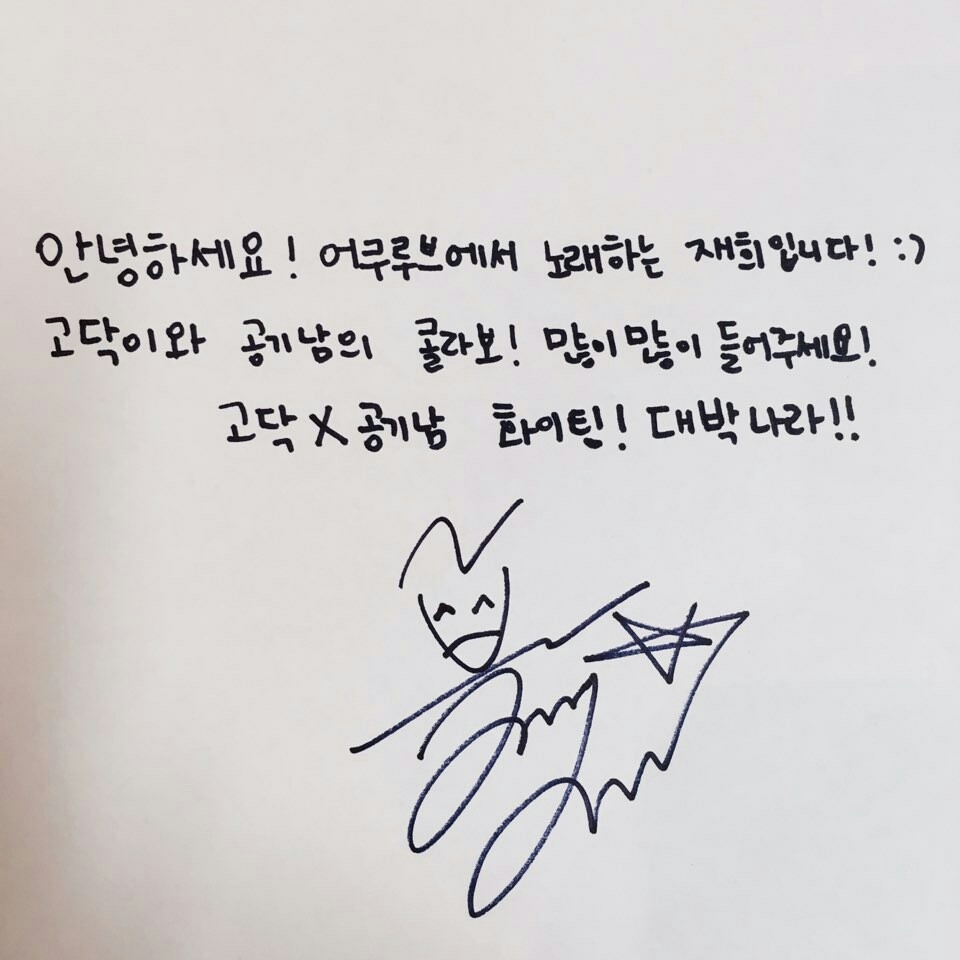 안녕하세요! 어쿠루브에서 노래하는 재희입니다! :)
고닥이와 공기남의 콜라보! 많이많이 들어주세요!
고닥 X 공기남 화이팅! 대박나라!!